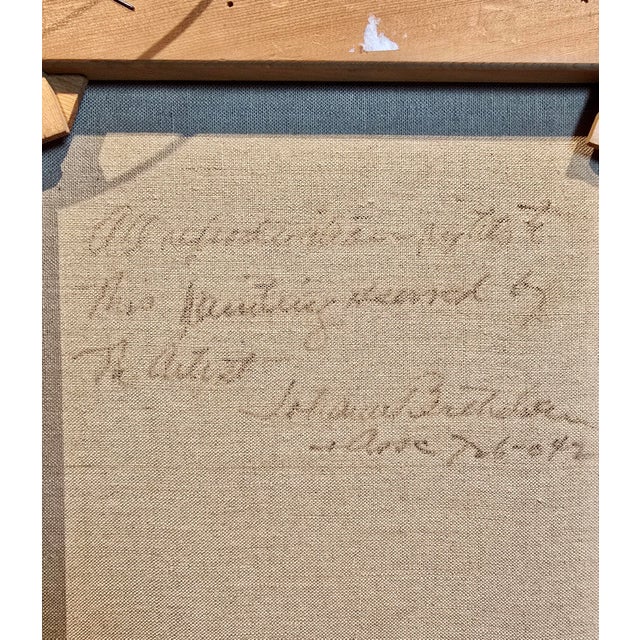 All reproduction rights to
this painting reserved by
The Artist
Johann Berthelsen